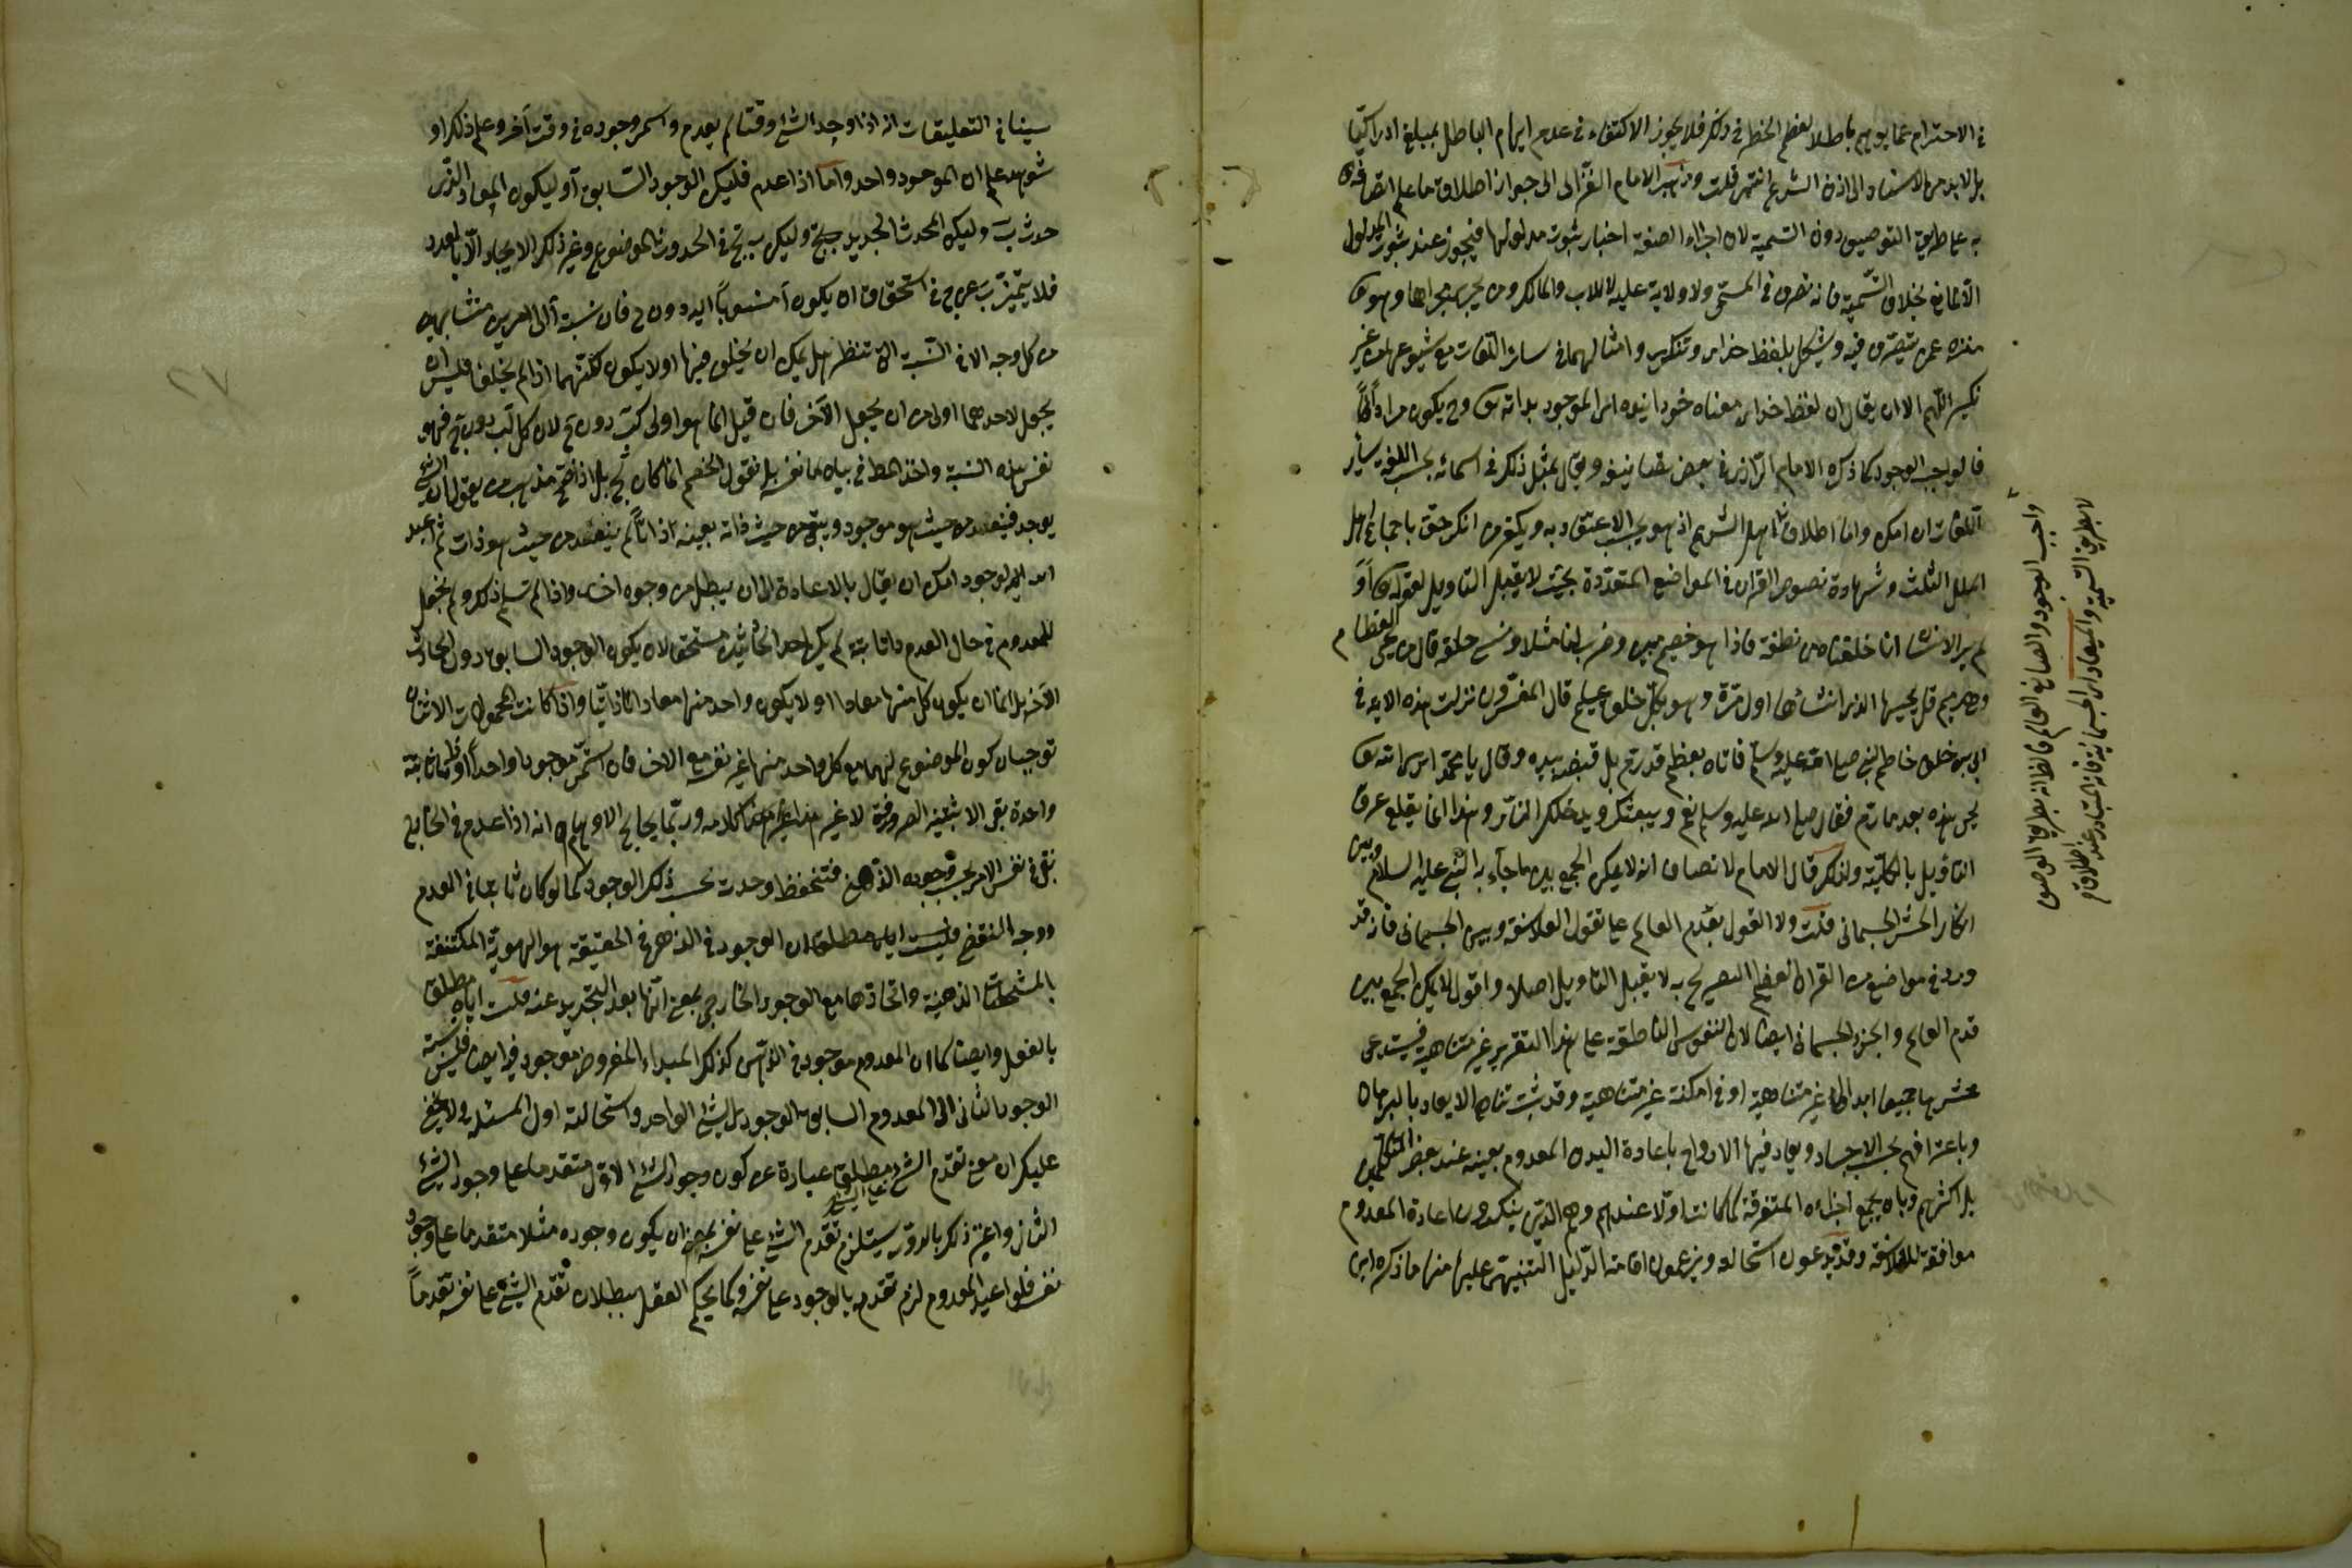 في الاحترام عما يوهم باطلا لعظم الخطر في ذلك فلا يجوز الاكتفاء في عدم ايهام الباطل بمبلغ ادراكنا
بل لابد من الاستناد الى اذن الشرع انتهى قلت وذهب الامام الغزالى الى جواز اطلاق ما علم اتصافه
به على طريق التوصيف دون التسمية لان اجراء الصفة اخبار بثبوت مدلولها فيجوز عند ثبوت المدلول
الا لمانع بخلاف التسمية فانه تصرف في المسمى ولا ولاية عليه الا للاب والمالك ومن يجرى مجراهما وهو تع
منزه عمن يتصرف فيه ويشكل بلفظ خداى وتنكرى وامثالهما في سائر اللغات مع شيوعها من غير
نكير اللهم الا ان يقال ان لفظ خداى معناه خود آينده اى الموجود بذاته تع وح يكون مرادفا
فالواجب الوجود كما ذكره الامام الرازى في بعض تصانيفه ويقال بمثل ذلك في اسمائه بحسب اللغة سائر
اللغات ان امكن واما اطلاق اهل الشرع اذ هو يجب الاعتقاد به ويكفر من انكر حق باجماع اهل
الملل الثلث وشهادة نصوص القران في المواضع المتعددة بحيث لا يقبل التاويل لقوله تع أو
لم ير الانسان انا خلقناه من نطفة فاذا هو خصيم مبين وضرب لنا مثلا ونسى خلقه قال من يحيى العظام
وهى رميم قل يحييها الذى انشأها اول مرة وهو بكل خلق عليم قال المفسرون نزلت هذه الاية في
ابى بن خلف خاصم النبى صلى الله عليه وسلم فاتاه بعظم قد رم بل قبضه بيده وقال يا محمد اترى الله تع
يحيى هذه بعد ما رم فقال صلى الله عليه وسلم نعم ويبعثك ويدخلك النار وهذا مما يقلع عرق
التاويل بالكلية ولذلك قال الامام الانصاف انه لا يمكن الجمع بين ما جاء به النبى عليه السلام وبين
انكار الحشر الجسمانى قلت ولا القول بقدم العالم على تقول الفلاسفة وبين الجسمانى فانه قد
ورد في مواضع من القران العظيم التصريح به لا يقبل التاويل اصلا واقول لا يمكن الجمع بين
قدم العالم و الجسمانى ايضا لان النفوس الناطقة على هذا التقرير غير متناهية فيستدعى
حشرها جميعا ابدانا غير متناهية او في امكنة غير متناهية وقد ثبت تناهى الابعاد بالبرهان
وباعترافهم بحسب الاجساد ويعاد فيها الارواح باعادة البدن المعدوم بعينه عند بعض المتكلمين
بل اكثرهم وبان يجمع اجزاءه المتفرقة كما كانت اولا عندهم وهم الذين ينكرون اعادة المعدوم
موافقة للفلاسفة وقد يدعون استحالته ويزعمون اقامة الدليل التنبيهى عليها منها ما ذكره ابن
واجب الوجود والصانع العالم
لا بطريق التسمية والمعاد اى الجسمانى فانه المتبادر عند اطلاقه
سينا في التعليقات انه اذا وجد الشئ وقتا ما لم يعدم واستمر وجوده في وقت آخر وعلم ذلك او
شوهد علم ان الموجود واحد واما اذا عدم فليكن الوجود السابق آ وليكون المعاد الذى
حدث ب وليكن المحدث الجديد ج وليكن ب كج في الحدوث والموضوع وغير ذلك الا بالعدد
فلا يتميز ب عن ج في استحقاق ان يكون آ منسوبا اليه دون ج فان نسبة آ الى امرين متشابهين
من كل وجه الا في النسبة التى تنظر هل يمكن ان يختلف فيها او لا يكون لكنهما اذا لم يختلفا فليس ان
يجعل لاحدهما اولى من ان يجعل الآخر فان قيل انما هو اولى لب دون ج لانه كان لب دون ج فهو
نفس هذه النسبة واخذ المط في بيان نفسه بل نقول الخصم انما كان لج بل اذا صح مذهب من يقول ان الشئ
يوجد فيفقد من حيث هو موجود ويبقى من حيث ذاته بعينه ذاتا لم يفقد من حيث هو ذات ثم اعيد
اليه الوجود امكن ان يقال بالاعادة الى ان يبطل من وجوه اخر واذا لم يسلم ذلك ولم يجعل
للمعدوم في حال العدم ذاتا ثابتة لم يكن احد الحادثين مستحقا لان يكون الوجود السابق دون الحادث
الآخر بل اما ان يكون كل منهما معادا او لا يكون واحد منهما معادا واذا كانت المحمولان الاثنان
توجبان كون الموضوع لهما مع كل واحد منهما غير نفسه مع الاخر فان استمر موجودا واحدا او ذاتا ثابتة
واحدة بقى الا ثنينية الصرفة لا غير هذا كلامه وربما يخالج الاوهام انه اذا عدم في الخارج
بقى في نفس الامر بحسب وجوده الذهنى فتنحفظ وحدته بحسب ذلك الوجود كما لو كان ثابتا في العدم
ووجه النقض فليست اياه مطلقا ان الوجود في الذهن في الحقيقة هو الهوية المكتنفة
بالمشخصات الذهنية واتحادها مع الوجود الخارجى بمعنى انها بعد التجريد عنه فليست اياه مطلقا
بالفعل وايضا كما ان المعدوم موجود في الذهن كذلك المبدأ المفروض موجود فيه ايضا فليس نسبة
الوجود الثانى الى المعدوم السابق الوجود الشئ الواحد واستحالته اول المسئلة ولا يخفى
عليك ان معنى تقدم الشئ مطلقا على الشئ عبارة عن كون وجود الشئ الاول متقدما على وجود الشئ
الثانى واعتبر ذلك بالدور يستلزم تقدم الشئ على نفسه بمعنى ان يكون وجوده مثلا متقدما على وجود
نفسه فلو اعيد المعدوم لزم تقدمه بالوجود على نفسه وكما يحكم العقل ببطلان تقدم الشئ على نفسه تقدما